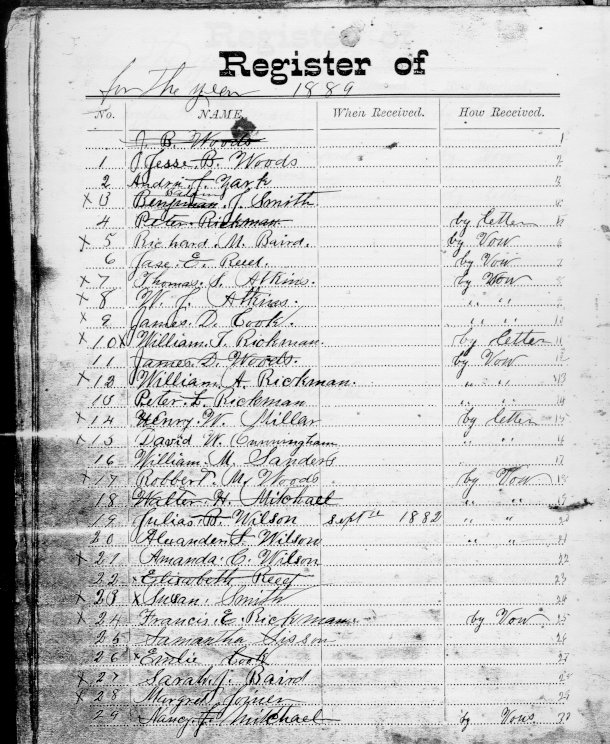 Register of
for The year 1889
No. NAME When Received. How Received.
J. B. Woods 1
1 J Jesse B. Woods 2
2 Andru J. Zark 3
x 3 Benjiman J. Smith
4 Peter Rickman by letter
x 5 Richard M. Baird. by Vow 6
6 Jase E. Reed. by Vow 7
x 7 Thomas. S. Atkins. by Vow 8
x 8 W. J. Atkins. " "
x 9 James. D. Cook. " " 10
x 10 x William. T. Rickman. by letter 11
11 James D. Woods. by Vow 12
x 12 William A. Rickman. " " 13
13 Peter L. Rickman " "
x 14 Henry. W. Millar by letter 15
x 15 David W. Cunningham " "
16 William. M. Sanders 17
x 17 Robbert. M. Woods by Vow
18 Walter. H. Mitchael " " 19
19 Julias. B. Wilson sept 1882 " " 20
20 Alexander. S. Wilson " " 21
x 21 Amanda. C. Wilson 22
22 Elisabeth Reed 23
x 23 x Susan. Smith 24
x 24 Francis. E. Rickman by Vow 25
25 Samantha Sisson 26
26 x Emlie Cook 27
x 27 Sarah. J. Baird
x 28 Margret Joiner 29
29 Nancy. J. Mitchael by Vows 30